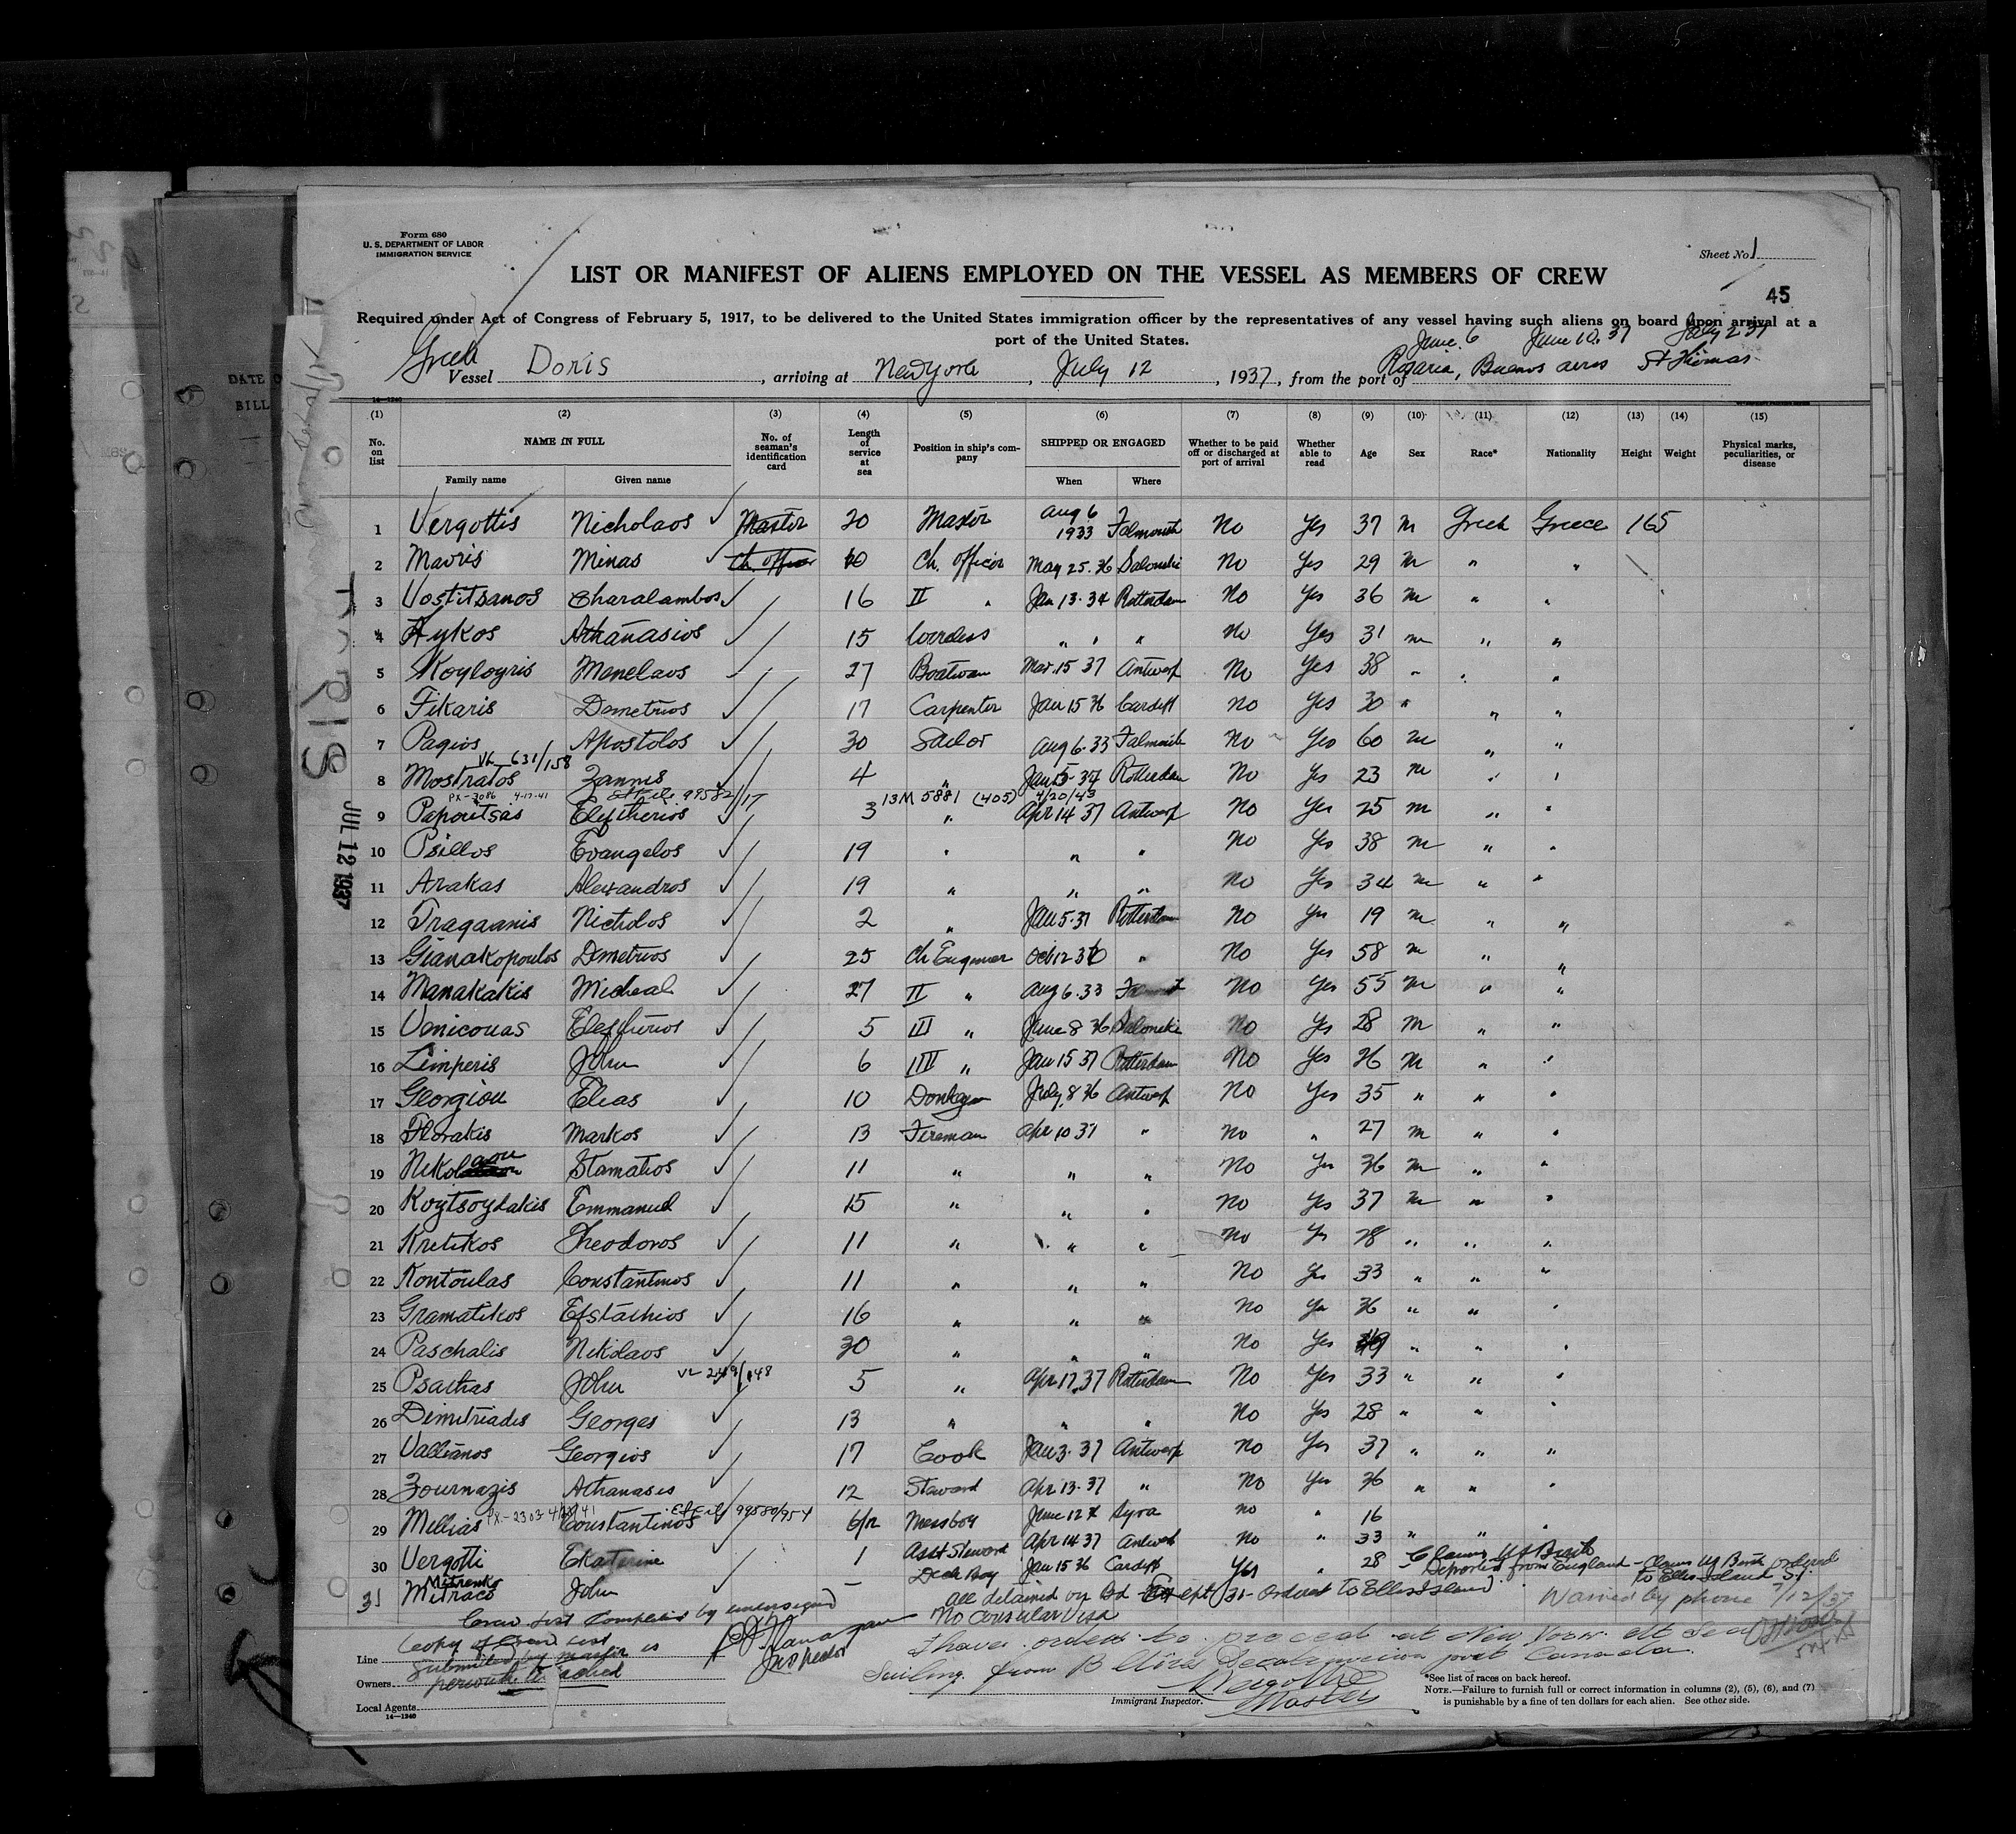 Form 680
U. S. DEPARTMENT OF LABOR
IMMIGRATION SERVICE
Sheet No. 1
LIST OR MANIFEST OF ALIENS EMPLOYED ON THE VESSEL AS MEMBERS OF CREW
45
Required under Act of Congress of February 5, 1917, to be delivered to the United States immigration officer by the representatives of any vessel having such aliens on board upon arrival at a
port of the United States.
June 6 June 10, 37 July 2 37
Greek Vessel Doris, arriving at New York, July 12, 1937, from the port of Rosaria, Buenos aires St Thomas
14—1240
(1) (2) (3) (4) (5) (6) (7) (8) (9) (10) (11) (12) (13) (14) (15)
No. on list NAME IN FULL No. of seaman's identification card Length of service at sea Position in ship's company SHIPPED OR ENGAGED Whether to be paid off or discharged at port of arrival Whether able to read Age Sex Race* Nationality Height Weight Physical marks, peculiarities, or disease
Family name Given name When Where
1 Vergottis Nicholaos Master 20 Master Aug 6 1933 Falmouth No Yes 37 m Greek Greece 165
2 Mavris Minas Ch. officer 10 Ch. officer May 25. 36 Saloniki No Yes 29 m " "
3 Vostitsanos Charalambos 16 II " Jan 13. 34 Rotterdam No Yes 36 m " "
4 Lykos Athanasios 15 Wireless " " " No Yes 31 m " "
5 Koyloyris Menelaos 27 Boatswan Mar. 15 37 Antwerp No Yes 38 " " "
6 Fikaris Demetrios 17 Carpenter Jan 15 36 Cardiff No Yes 30 " " "
7 Pagios Apostolos 30 Sailor Aug 6. 33 Falmouth No Yes 60 m " "
VL 631/158
8 Mostratos Zannis 4 " Jan 5. 37 Rotterdam No Yes 23 m " "
PX-3086 4-17-41 99582/17 13M 5881 (405) 4/20/43
9 Papoutsas Eleftherios 3 " Apr 14 37 Antwerp No Yes 25 m " "
10 Psillos Evangelos 19 " " " No Yes 38 m " "
11 Arakas Alexandros 19 " " " No Yes 34 m " "
12 Tragaanis Nicholos 2 " Jan 5. 37 Rotterdam No Yes 19 m " "
13 Gianakopoulos Demetrios 25 Ch Engineer Oct 12 36 " No Yes 58 m " "
14 Manakakis Micheal 27 II " Aug 6. 33 No Yes 55 m " "
15 Venicouas Elesfterios 5 III " June 8 36 Saloneki No Yes 28 m " "
16 Limperis John 6 IIII " Jan 15 37 Rotterdam No Yes 26 m " "
17 Georgiou Elias 10 Donkeyman July 8 36 Antwerp No Yes 35 " " "
18 Florakis Markos 13 Fireman Apr 10 37 " No " 27 m " "
19 Nikolaou Stamatios 11 " " " No Yes 36 m " "
20 Koytsoydakis Emmanuel 15 " " " No Yes 37 m " "
21 Kretikos Theodoros 11 " " " No Yes 28 " " "
22 Kontoulas Constantinos 11 " " " No Yes 33 " " "
23 Gramatikos Efstathios 16 " " " No Yes 36 " " "
24 Paschalis Nikolaos 30 " " " No Yes 49 " " "
VL 249/148
25 Psachas John 5 " Apr 17. 37 Rotterdam No Yes 33 " " "
26 Dimitriadis Georges 13 " " " No Yes 28 " " "
27 Vallianos Georgios 17 Cook Jan 3. 37 Antwerp No Yes 37 " " "
28 Zournazis Athanasis 12 Steward Apr 13. 37 " No Yes 36 " " "
PX-2303 99580/954
29 Mellias Constantinos 6/12 Messboy June 12 Syra No " 16
30 Vergotti Ekaterine 1 Asst Steward Apr 14 37 Antwerp No " 33 " " "
31 Mitraco Mitrenko John Deck Boy Jan 15 36 Cardiff Yes " 28 Claims US Birth
Deported from England - Claims US Birth ordered to Ellis Island
All detained on Bd Except (31- Ordered to Ellis Island)
Warned by phone 7/12/37
No Consular Visa
Crew list completed by undersigned
Copy of Crew List
submitted by master is
attached
Inspector
I have orders to proceed at New York
from B Aires port Canada
Master
Line
Owners
Local Agents
14—1240
Immigrant Inspector.
*See list of races on back hereof.
NOTE.—Failure to furnish full or correct information in columns (2), (5), (6), and (7)
is punishable by a fine of ten dollars for each alien. See other side.
DORIS
JUL 12 1937
DATE O
BILL